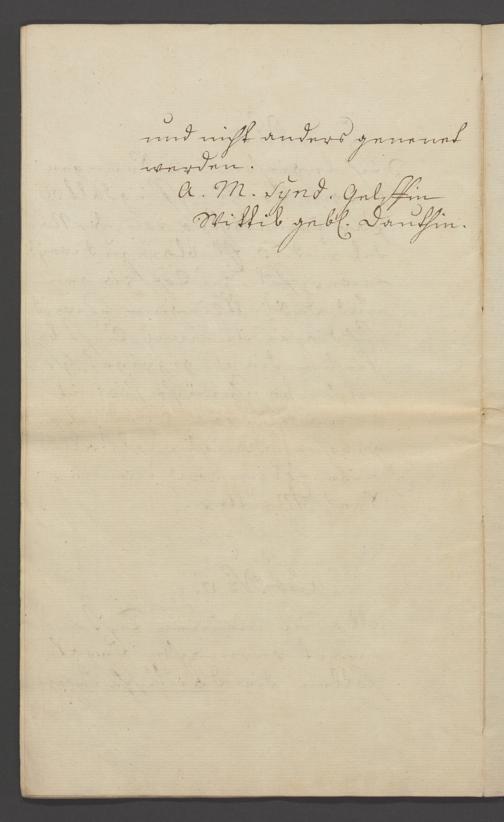 und nicht anders genenet
werden.
A. M. Synd. Gelssin
Wittib geb. Dauthin.